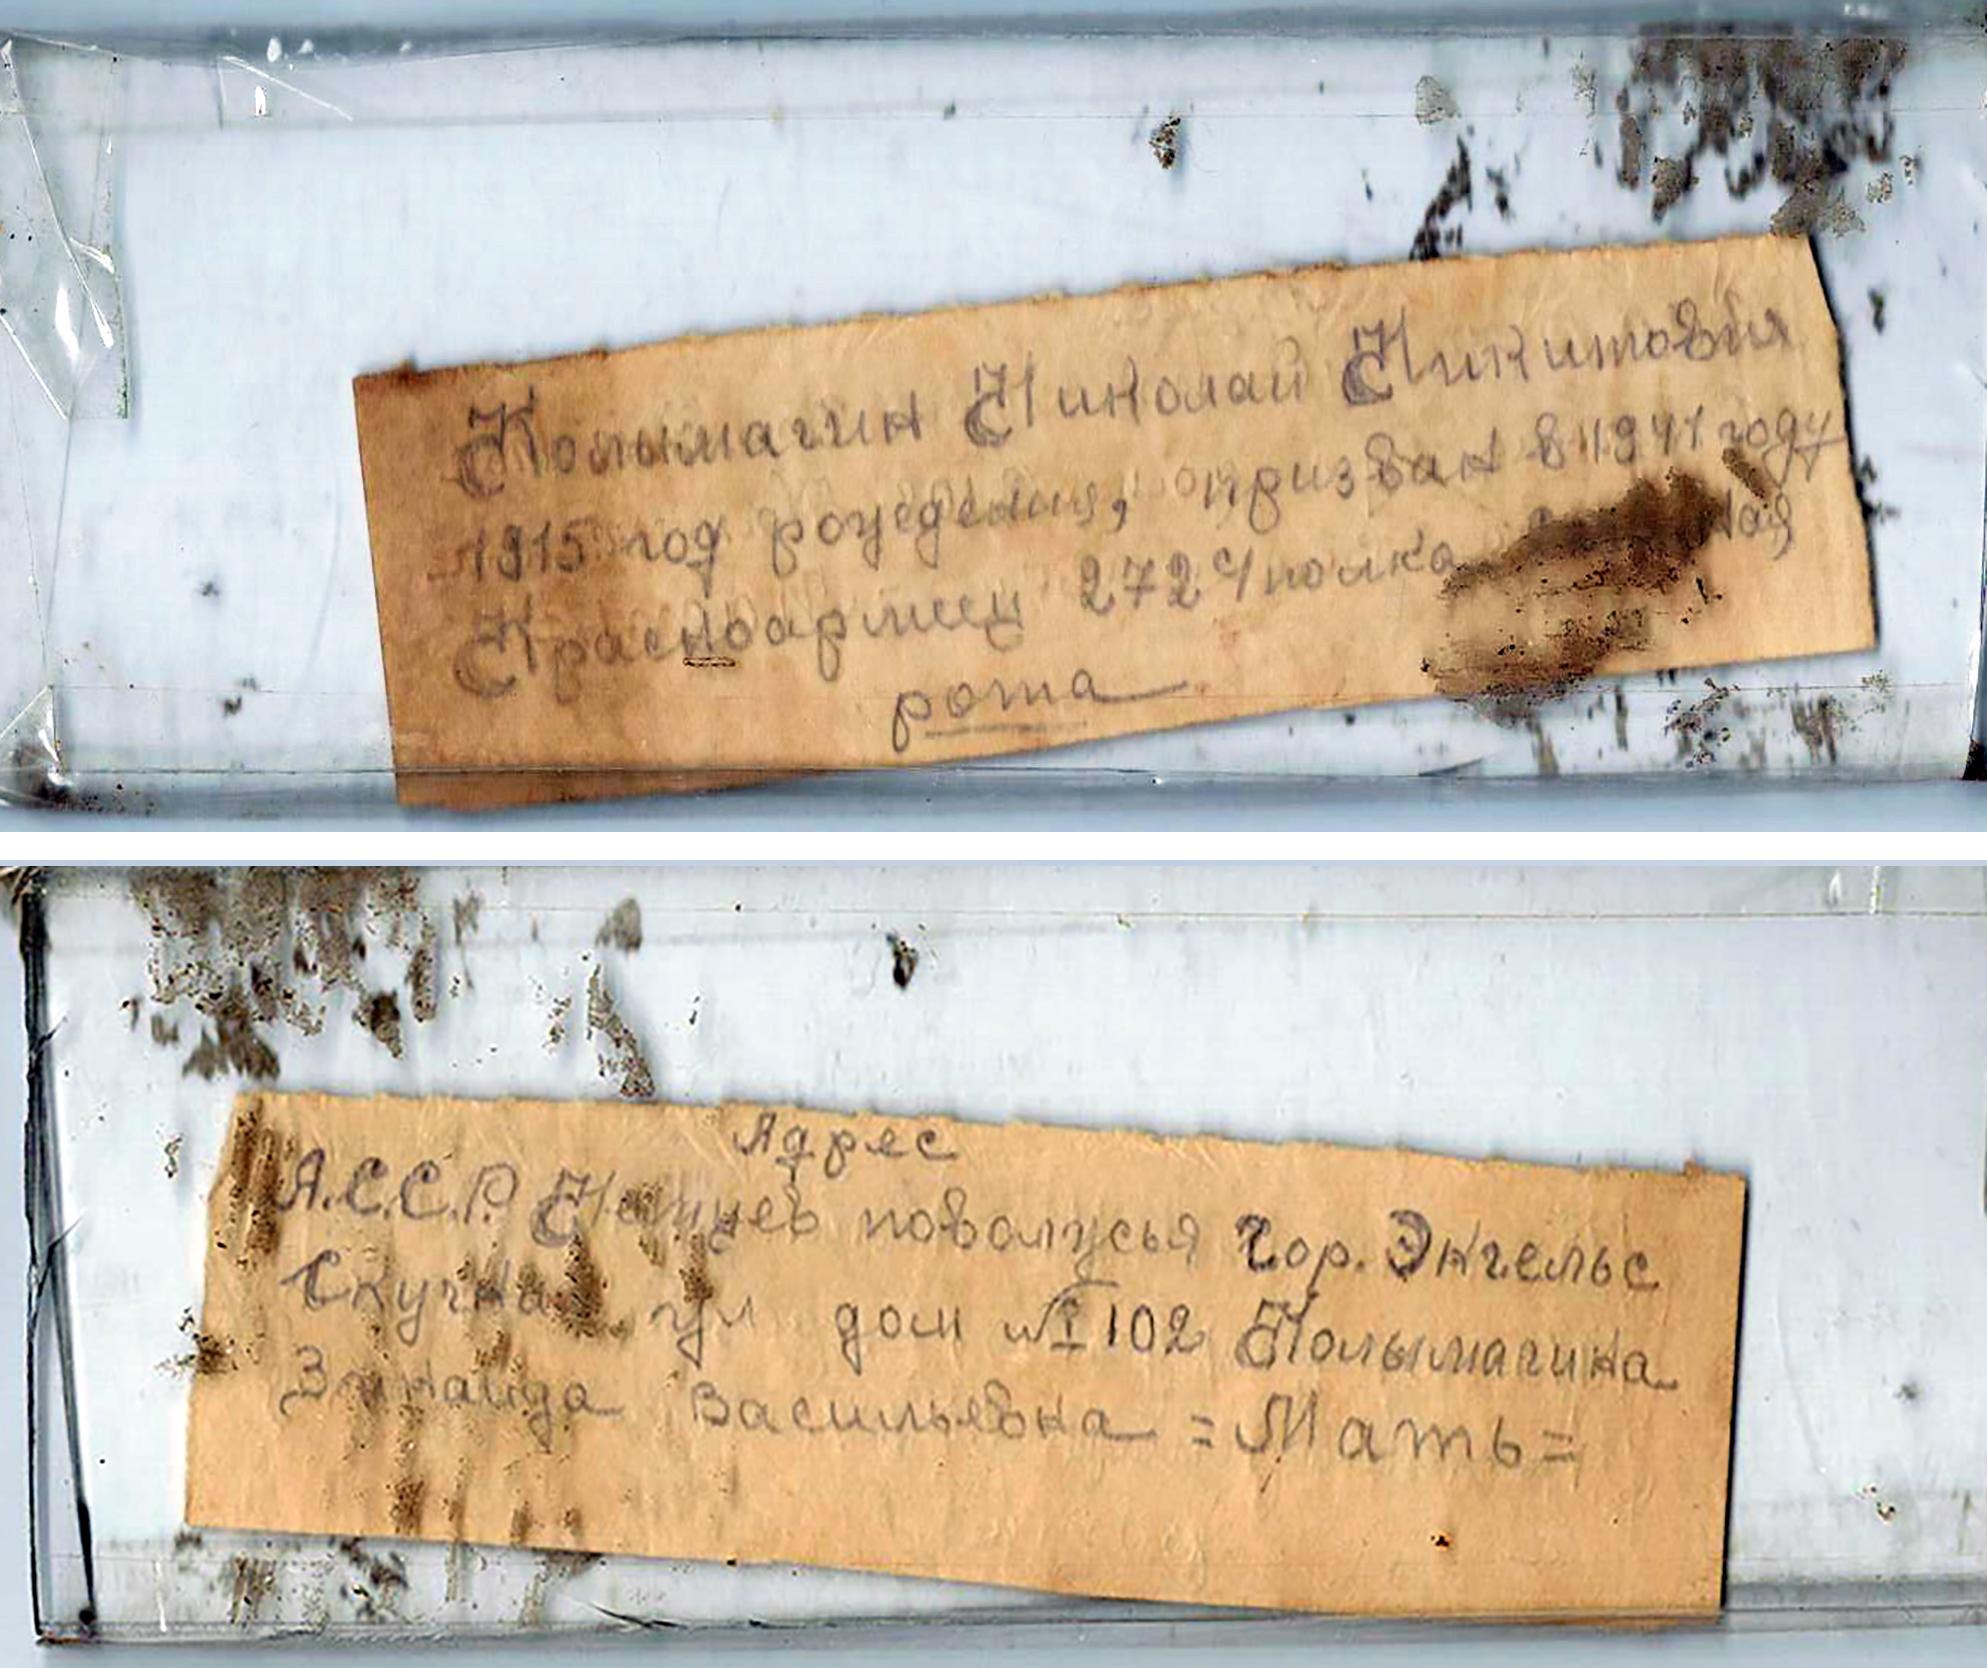 Колымагин Николай Никитович
1915 год рождения, призван в 1941 году
Красноармеец 272 с/полка
рота
Адрес
А.С.С.Р. Немцев поволжья гор. Энгельс
ул дом № 102 Колымагина
Зинаида Васильевна = Мать =